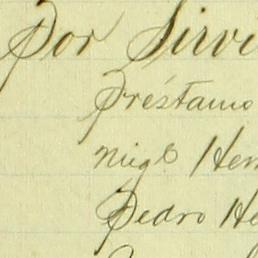 Por Sirvi
Préstamo
Migl Hern
Pedro He